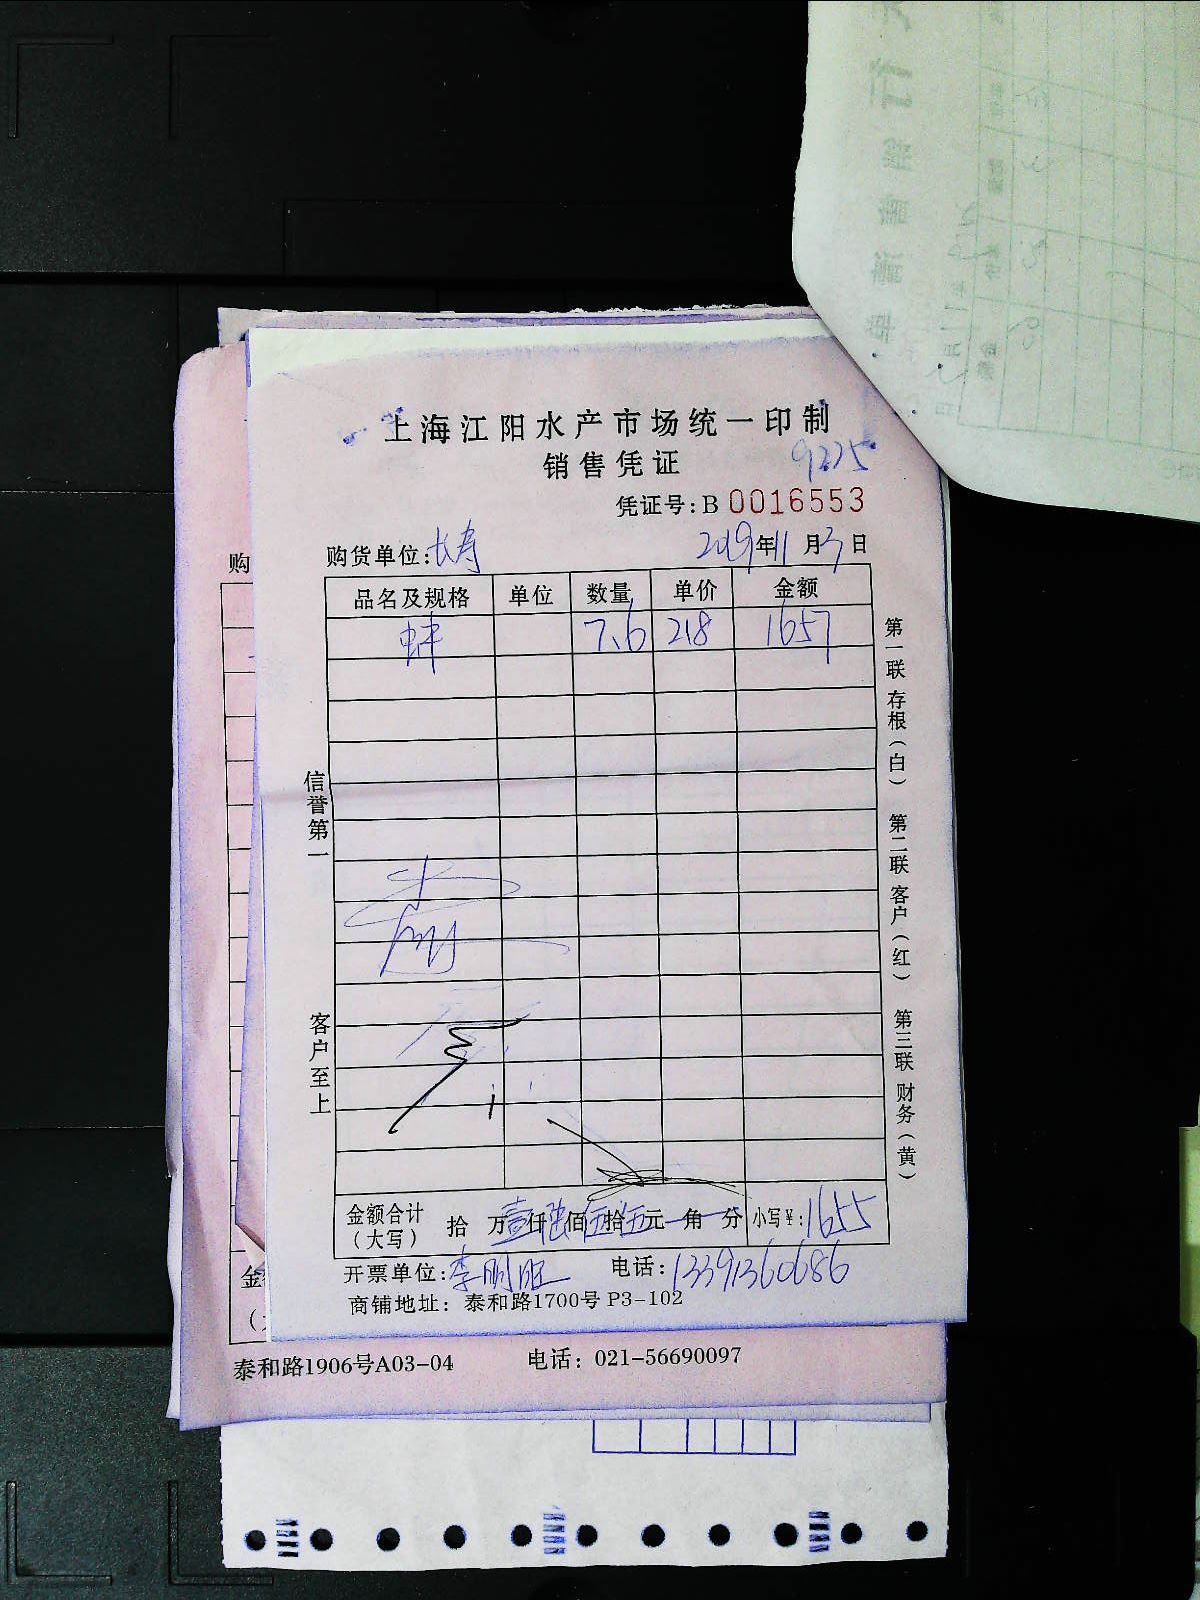 上海江阳水产市场统一印制
销售凭证
9225
凭证号:B 0016553
购货单位:长寿 2019年11月3日
品名及规格 单位 数量 单价 金额
蚌 7.6 218 1657
信誉第一
客户至上
第一联 存根(白) 第二联 客户(红) 第三联 财务(黄)
金额合计(大写) 拾 万壹仟陆佰伍拾伍元 角 分 小写¥:1655
开票单位:李明旺 电话:13391360686
商铺地址: 泰和路1700号 P3-102
购
金
泰和路1906号A03-04 电话: 021-56690097